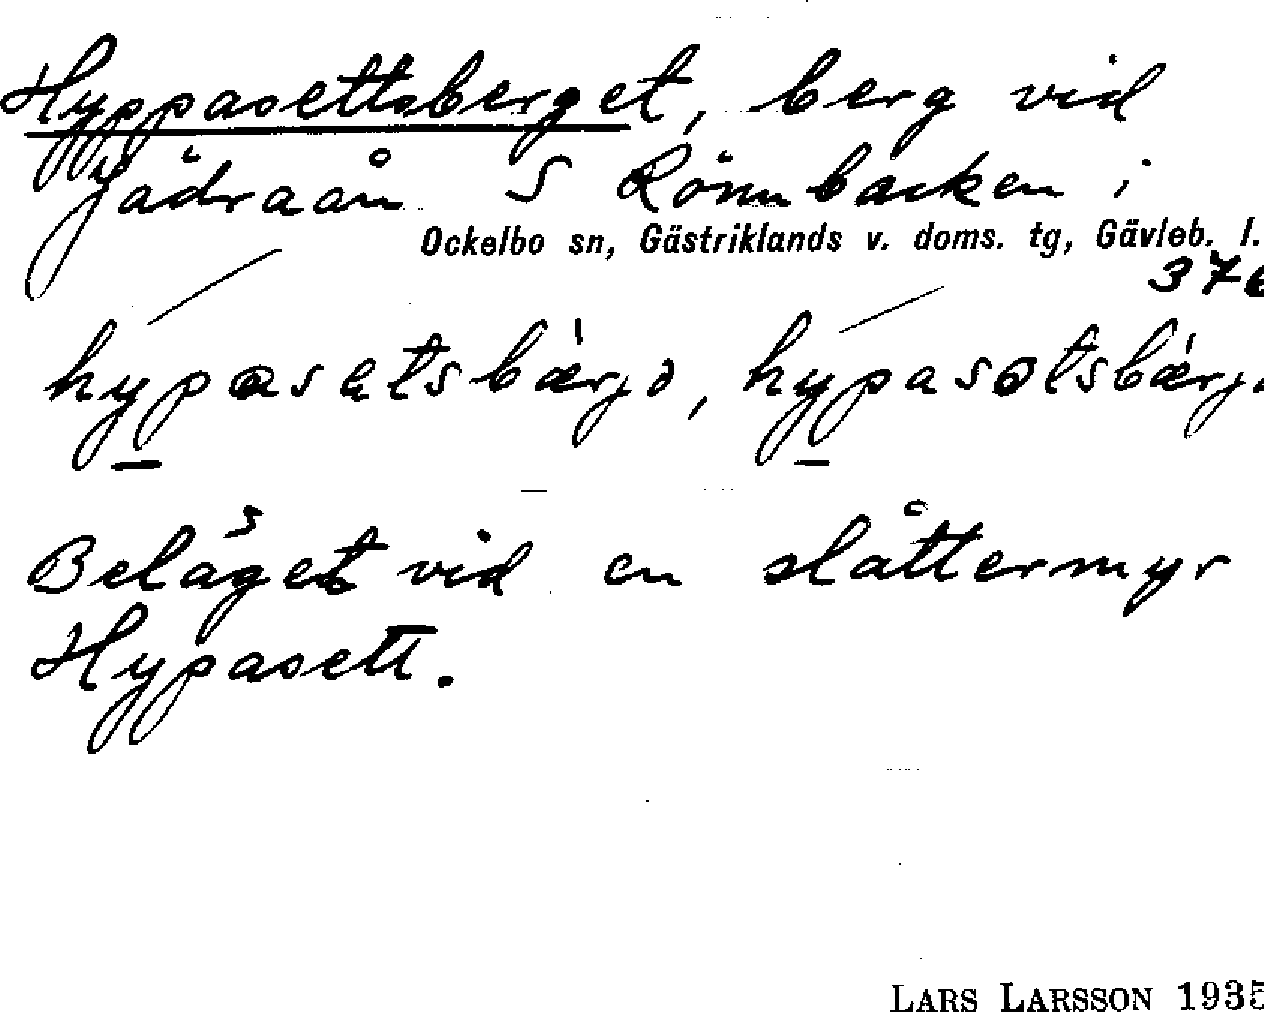 Hyppasettsberget, berg vid
Jädraån S Rönnbacken i
Ockelbo sn, Gästriklands v. doms. tg, Gävleb. l.
376
hypasatsbærjə, hypasətsbærjə
Beläget vid en slåttermyr
Hypasett.
LARS LARSSON 1935